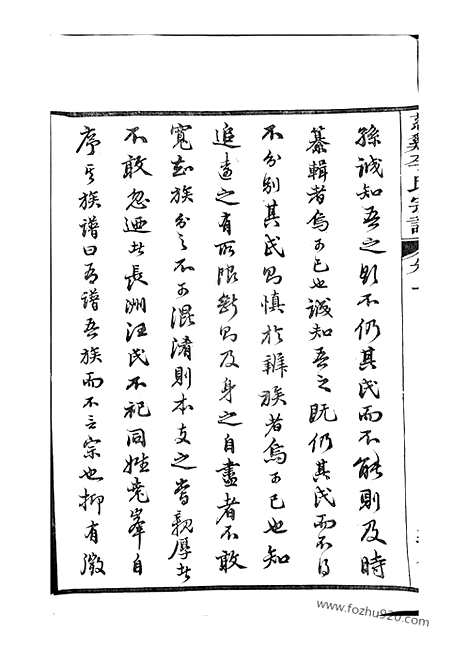 孫誠知吾之不仍其氏而不能則及時
纂輯者烏可已也誠知吾之既仍其氏而不得
不分別其氏則慎於辨族者烏可已也知
追遠之有所限斷則及身之自盡者不敢
寬知族分之不可混淆則本支之當親厚者
不敢忽迺者長洲汪氏不祀同姓堯峯自
序其族譜曰吾譜吾族而不言宗也抑有微
www.fozhu920.com